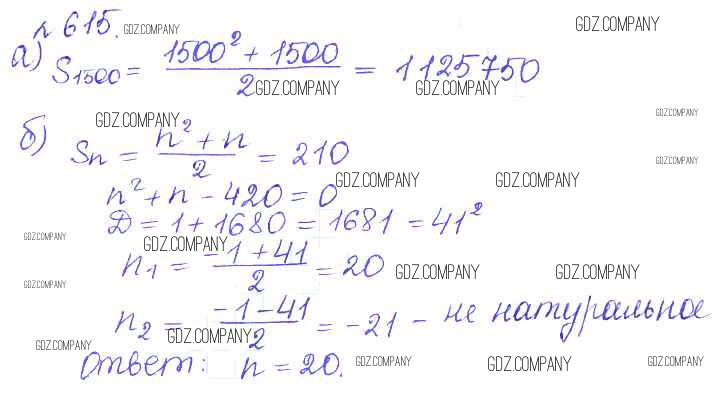 № 615. GDZ.COMPANY GDZ.COMPANY
а) S₁₅₀₀ = (1500² + 1500)/2 = 1125750
GDZ.COMPANY GDZ.COMPANY GDZ.COMPANY
GDZ.COMPANY
б) Sn = (n² + n)/2 = 210
GDZ.COMPANY
n² + n - 420 = 0
GDZ.COMPANY GDZ.COMPANY
D = 1 + 1680 = 1681 = 41²
GDZ.COMPANY GDZ.COMPANY
n₁ = (-1 + 41)/2 = 20
GDZ.COMPANY GDZ.COMPANY GDZ.COMPANY
n₂ = (-1 - 41)/2 = -21 - не натуральное
GDZ.COMPANY GDZ.COMPANY
Ответ: n = 20.
GDZ.COMPANY GDZ.COMPANY GDZ.COMPANY